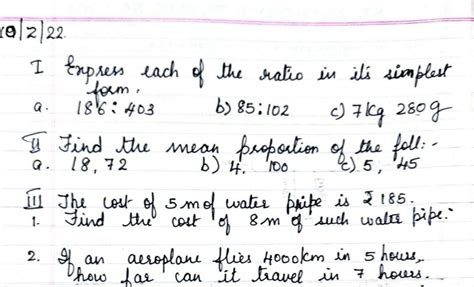 10/2/22
I Express each of the ratio in it's simplest
form.
a. 186:403 b) 85:102 c) 7kg 280g
II Find the mean proportion of the foll:-
a. 18, 72 b) 4, 100 c) 5, 45
III The cost of 5m of water pipe is ₹ 185.
1. Find the cost of 8m of such water pipe.
2. If an aeroplane flies 4000km in 5 hours,
how far can it travel in 7 hours.